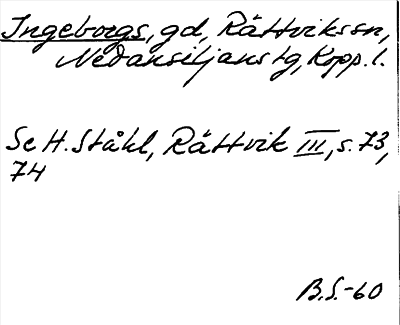 Ingeborgs, gd, Rättvikssn,
Nedansiljanstg, Kopp. l.
Se H. Ståhl, Rättvik III, s. 73,
74
B.S.-60